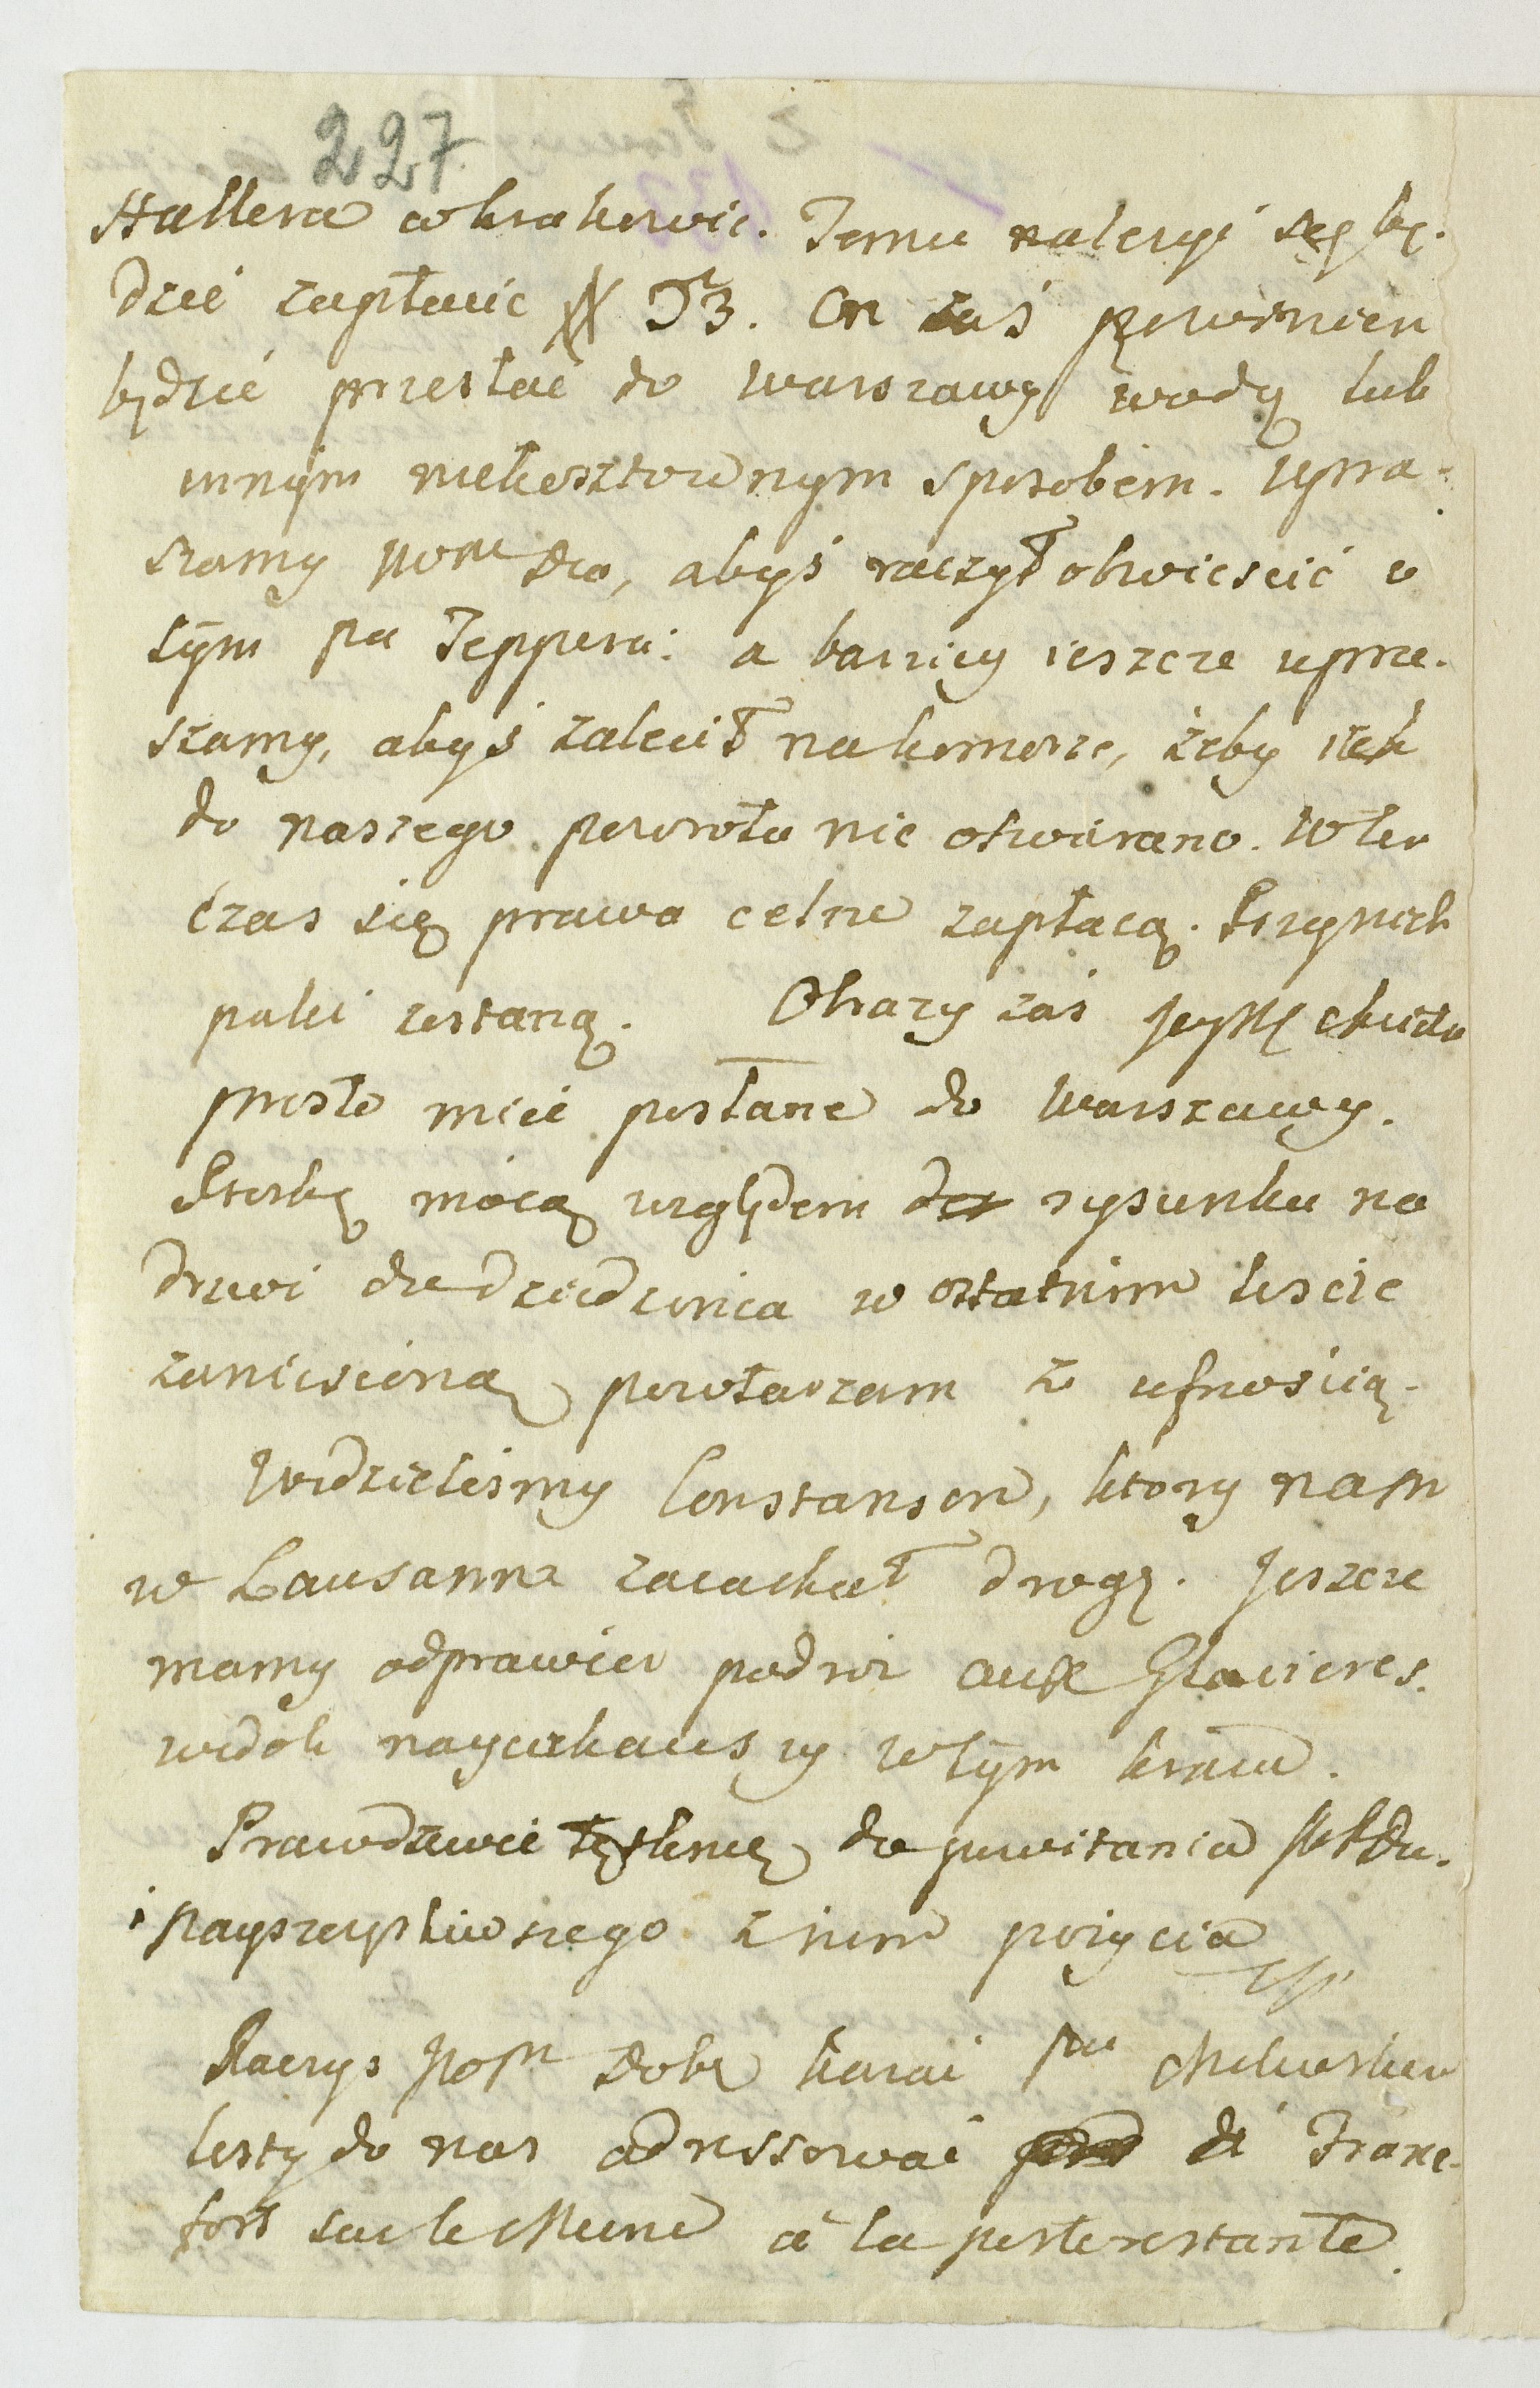 227
Hallera w krakowie. Temu należyć się bę-
dzie zapłacić # 53. On zaś powinien
będzie przesłać do warszawy wodą lub
innym niekosztownym sposobem. Upra-
szamy Dra, abyś raczył obwieścić o
tym Pa Teppera: a barziey ieszcze upra-
szamy, abyś zalecił na komorze, żeby ich
do naszego powrotu nie otwierano. W ten
czas się prawa celne zapłacą. Skrzynek
paki zostaną. Obrazy zaś chciało
prosto mieć posłane do Warszawy.
Prozbę moią względem rysunku na
drzwi dziedzinca w ostatnim liscie
zaniesioną powtarzam z ufnością.
Widzielismy Constanson, ktory nam
w Lausanne zaiachał drogę. Jeszcze
mamy odprawić podroz aux Glacieres.
widok nayciekawszy w tym kraiu.
Prawdziwie tęsknię do powitania
i nayszczęśliwszego z nim pożycia
Raczys Dobr kazać
listy do nas adressować à Franc-
fort sur le Mein à la poste restante.